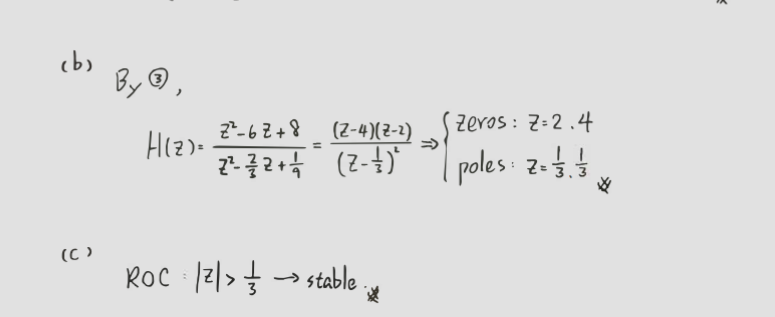 (b) By ③,
H(z)= (z²-6z+8)/(z²-2/3z+1/9) = (z-4)(z-2)/(z-1/3)² ⇒ { zeros: z=2.4
poles: z=1/3.1/3 ※
(c)
ROC: |z|>1/3 → stable.※